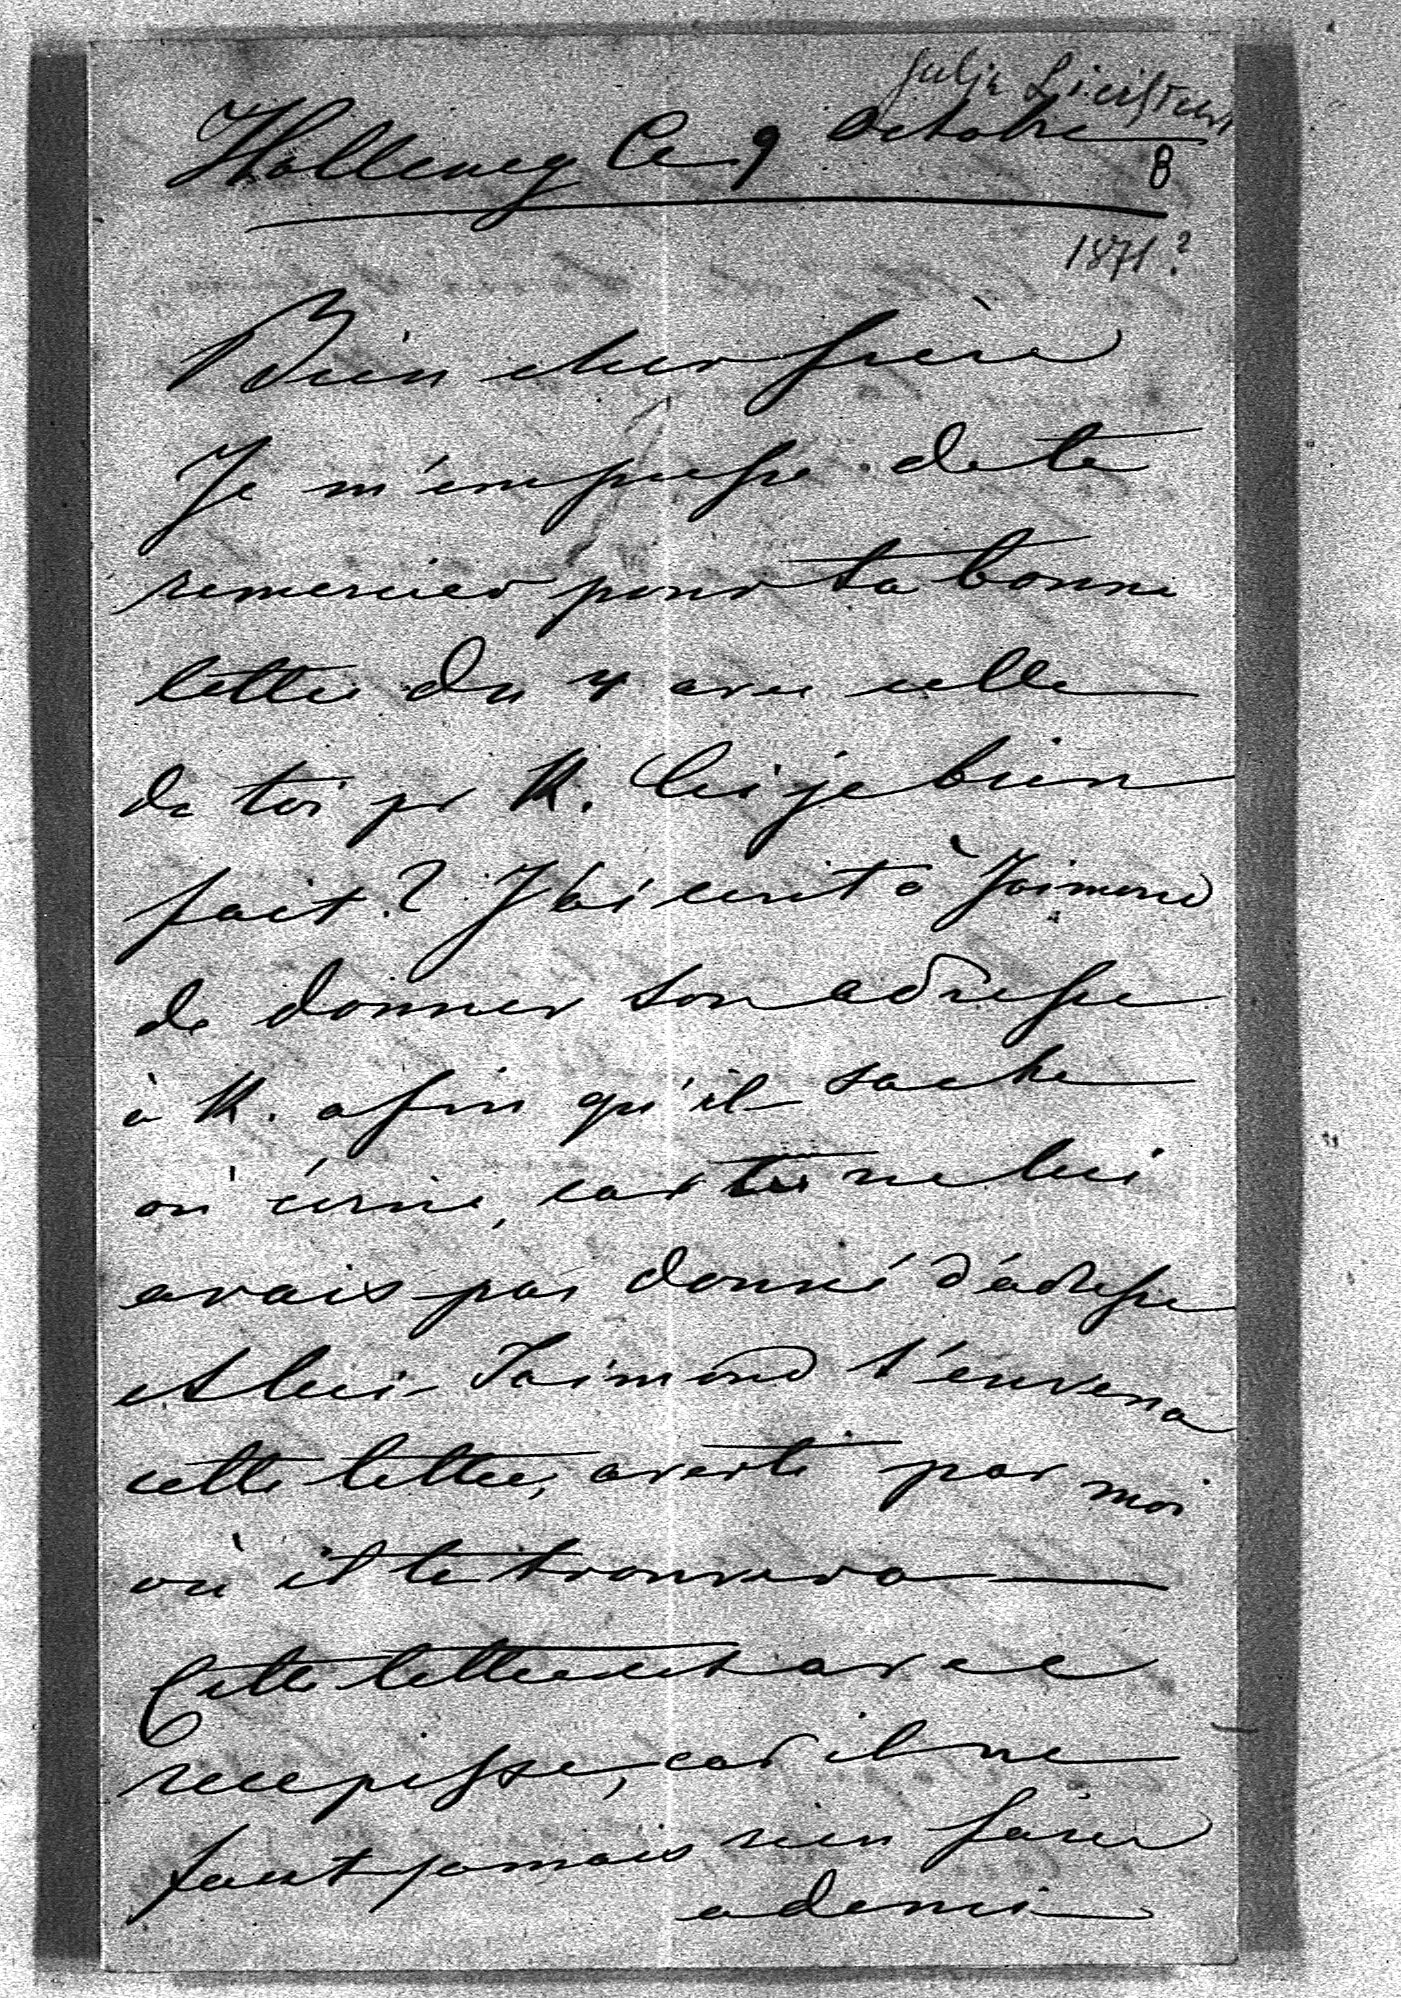 Julie
Holleneg Ce 9 Octobre
8
1871?
Bien cher frère
Je m'empresse de te
remercier pour ta bonne
lettre du 4 avec celle
de toi pr K. Ceije bien
fait? J'ai ecrit à Jaimond
de donner son adresse
à K. afin qu'il sache
où écrire, car tu ne lui
avais pas donné d'adresse
et lui Jaimond t'enverra
cette lettre, averti par moi
où il te trouvera
Cette lettre est avec
recepisse, car il ne
faut jamais rien faire
a demi